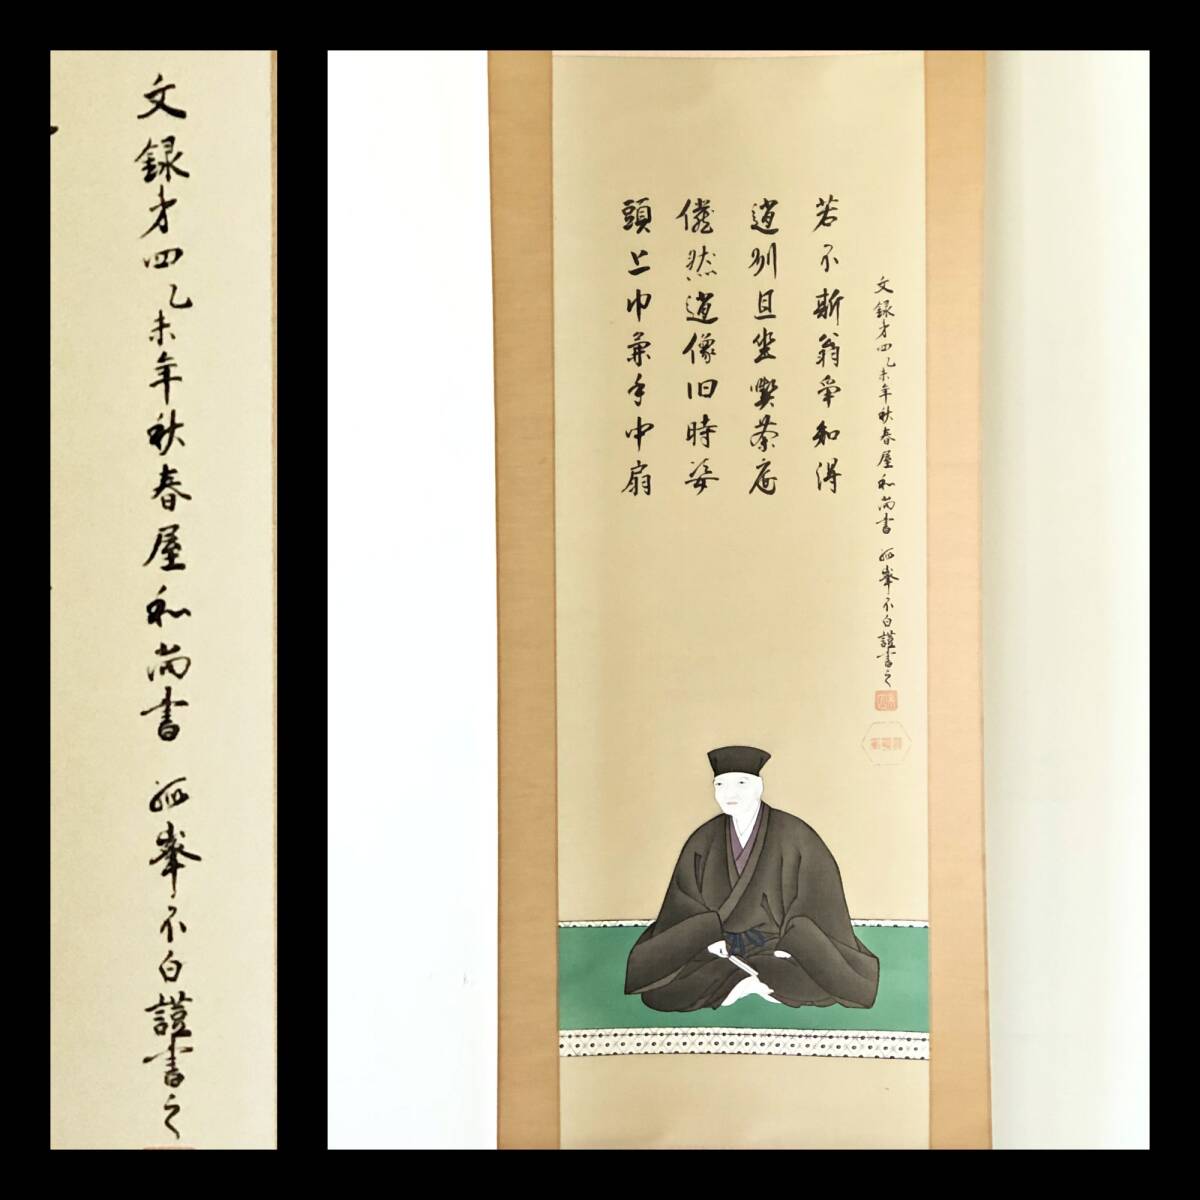 文録才四乙未年秋春屋和尚書 孤峯不白謹書之
頭上巾兼手中扇
儼然遺像旧時姿
趙州且坐喫茶底
若不斯翁争知得
文録才四乙未年秋春屋和尚書 孤峯不白謹書之